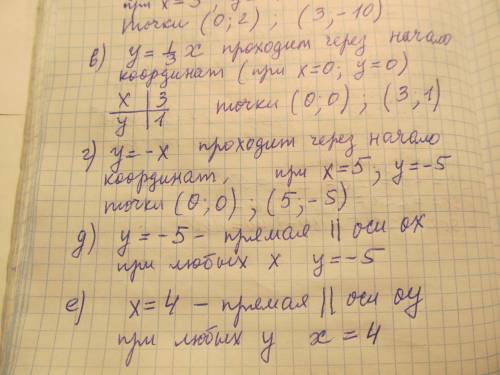 при x=3, y=
точки (0;2) ; (3,-10)
в) y=1/3 x проходит через начало
координат (при x=0; y=0)
x | 3 точки (0;0) ; (3,1)
y | 1
г) y=-x проходит через начало
координат, при x=5, y=-5
точки (0;0) ; (5;-5)
д) y=-5 - прямая || оси ox
при любых x y=-5
е) x=4 - прямая || оси оу
при любых y x=4